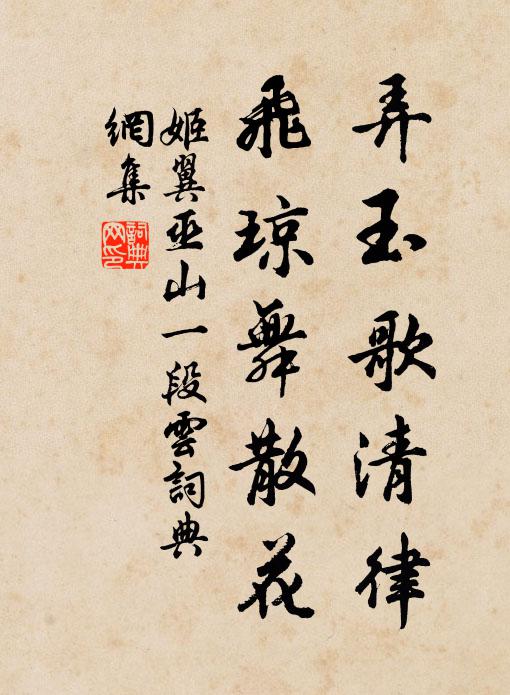 弄玉歌清律
飛瓊舞散花
姬翼巫山一段雲詞典
網集
詞典
网印